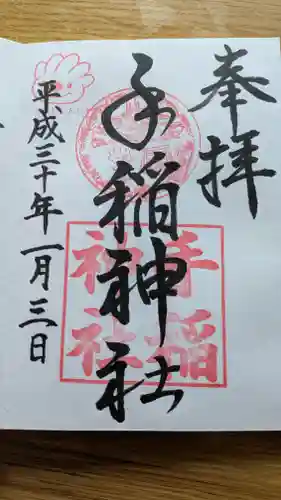 奉拝
手稲神社
手稲
神社
平成三十年一月三日